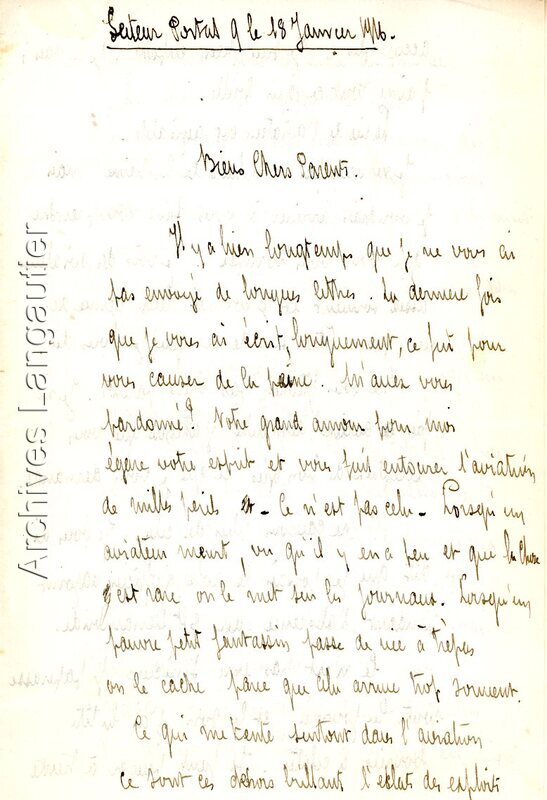 Secteur Postal 9 le 18 Janvier 1916.
Biens Chers Parents.
Il y a bien longtemps que je ne vous ai
pas envoyé de longues lettres. La derniere fois
que je vous ai écrit, longuement, ce fut pour
vous causer de la peine. M'avez vous
pardonné? Votre grand amour pour moi
égare votre esprit et vous fait entourer l'aviation
de milles perils - Ce n'est pas cela - Lorsqu'un
aviateur meurt, vu qu'il y en a peu et que la chose
est rare on le met sur les journaux. Lorsqu'un
pauvre petit fantassin passe de vie à trépas
on le cache parce que cela arrive trop souvent.
Ce qui me tente surtout dans l'aviation
ce sont ces dehors brillant l'eclat des exploits
Archives Langautier